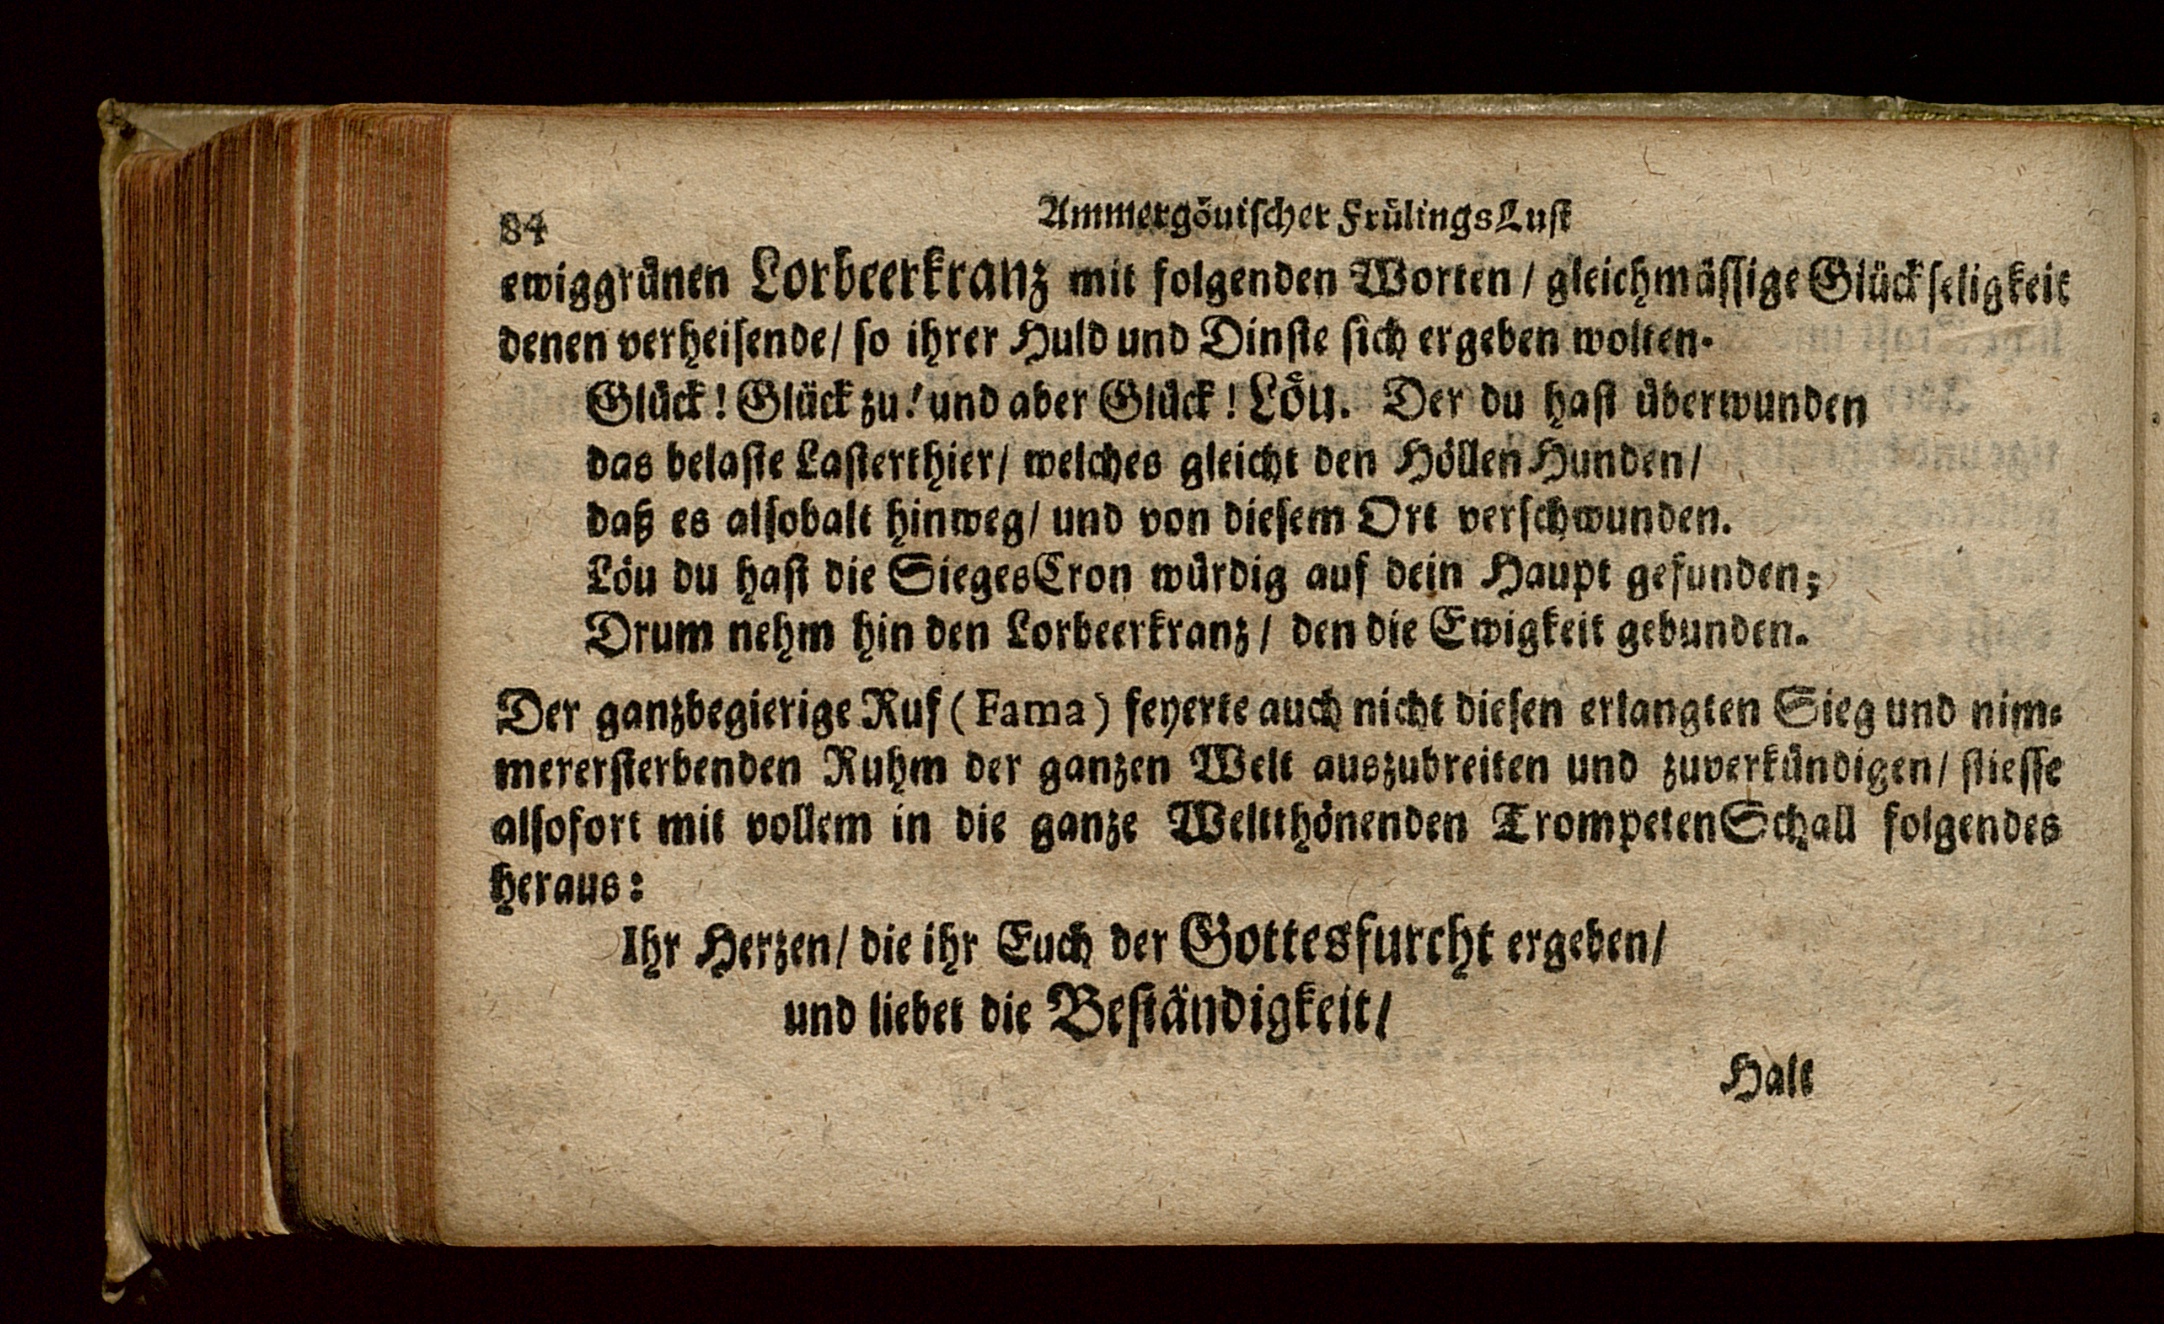 84
Ammergöuischer FrülingsLust
ewiggrünen Lorbeerkranz mit folgenden Worten / gleichmässige Glückseligkeit
denen verheisende / so ihrer Huld und Dinste sich ergeben wolten.
Glück! Glück zu! und aber Glück! Löu. Der du hast überwunden
das belaste Lasterthier / welches gleicht den HöllenHunden /
daß es alsobalt hinweg / und von diesem Ort verschwunden.
Löu du hast die SiegesCron würdig auf dein Haupt gefunden;
Drum nehm hin den Lorbeerkranz / den die Ewigkeit gebunden.
Der ganzbegierige Ruf (Fama) feyerte auch nicht diesen erlangten Sieg und nim-
merersterbenden Ruhm der ganzen Welt auszubreiten und zuverkündigen / stiesse
alsofort mit vollem in die ganze Weltthönenden TrompetenSchall folgendes
heraus:
Ihr Herzen / die ihr Euch der Gottesfurcht ergeben /
und liebet die Beständigkeit /
Halt